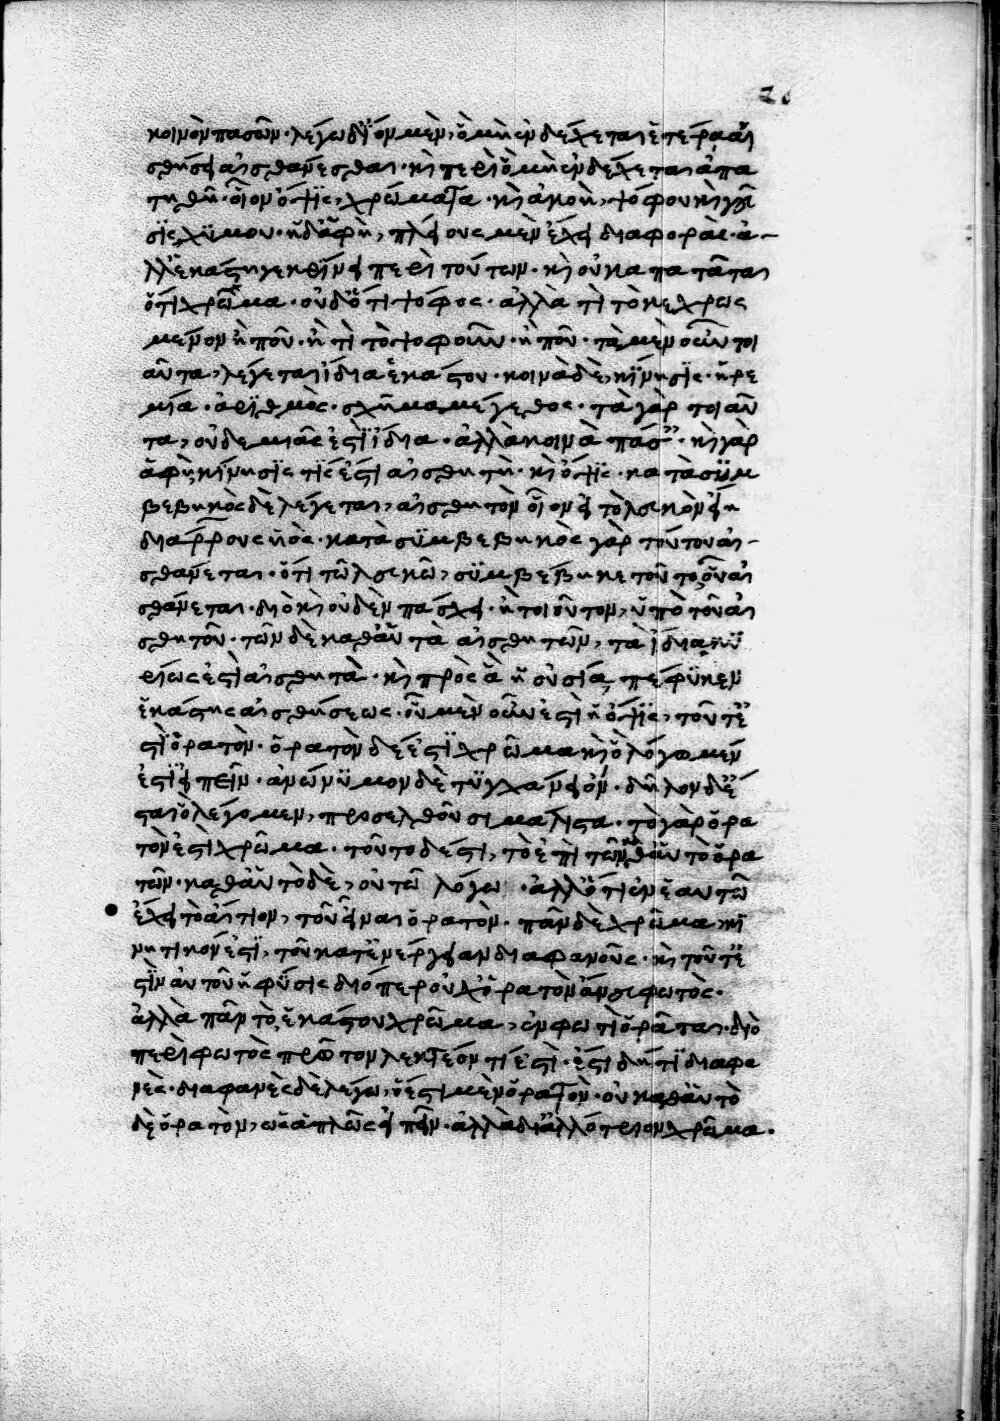 κοινὸν πασῶν· λέγω δ' ἴδιον μὲν, ὃ μὴ ἐνδέχεται ἑτέρᾳ αἰ
σθήσει αἰσθάνεσθαι· καὶ περὶ ὃ μὴ ἐνδέχεται ἀπα
τηθῆν· οἷον ὄψις, χρώματα· καὶ ἀκοὴ, ψόφου καὶ γεῦ
σις, χυμοῦ· ἡ δ' ἁφὴ, πλείους μὲν ἔχει διαφοράς· ἀ-
λλ' ἑκάστη γε κρίνει περὶ τούτων· καὶ οὐκ ἀπατᾶται
ὅτι χρῶμα· οὐδ' ὅτι ψόφος· ἀλλὰ τί τὸ κεχρως
μένον ἢ ποῦ· ἢ τί τὸ ψοφοῦν· ἢ ποῦ· τὰ μὲν οὖν τοι
αῦτα, λέγεται ἴδια ἑκάστου· κοινὰ δὲ, κίνησις· ἠρε
μία· ἀριθμὸς· σχῆμα μέγεθος· τὰ γὰρ τοιαῦ
τα, οὐδεμιᾶς ἐστὶ ἴδια· ἀλλὰ κοινὰ πάσαις· καὶ γὰρ
ἁφῇ κίνησις τίς ἐστι αἰσθητὴ· καὶ ὄψει· κατὰ συμ
βεβηκὸς δὲ λέγεται, αἰσθητὸν οἷον εἰ τὸ λευκὸν εἴη
διάρρους υἱὸς· κατὰ συμβεβηκὸς γὰρ τούτου αἰ-
σθάνεται· ὅτι τῶ λευκῶ, συμβέβηκε τοῦτο, οὗ αἰ
σθάνεται· διὸ καὶ οὐδὲν πάσχει· ᾗ τοιοῦτον, ὑπὸ τοῦ αἰ
σθητοῦ· τῶν δὲ καθ' αὑτὰ αἰσθητῶν, τὰ ἴδια κυ
ρίως ἐστὶ αἰσθητὰ· καὶ πρὸς ἃ ἡ οὐσία, πέφυκεν
ἑκάστης αἰσθήσεως· οὗ μὲν οὖν ἐστὶ ἡ ὄψις, τοῦτ' ἐ
στὶ ὁρατὸν· ὁρατὸν δέ ἐστι χρῶμα καὶ ὃ λόγω μὲν
ἐστὶ εἰπεῖν· ἀνώνυμον δὲ τυγχάνει ὄν· δῆλον δὲ ἔ
σται ὃ λέγομεν, προσελθοῦσι μάλιστα· τὸ γὰρ ὁρα
τὸν ἐστὶ χρῶμα· τοῦτο δέ ἐστι, τὸ ἐπὶ τῶν καθ' αὑτὸ ὁρα
τῶν· καθ' αὑτὸ δὲ, οὐ τῶ λόγω· ἀλλ' ὅτι ἐν ἑαυτῶ
ἔχει τὸ αἴτιον, τοῦ εἶναι ὁρατὸν· πᾶν δὲ χρῶμα, κι
νητικόν ἐστι, τοῦ κατ' ἐνέργειαν διαφανοῦς· καὶ τοῦτ' ἔ
στιν αὐτοῦ ἡ φύσις διόπερ οὐχ ὁρατὸν ἄνευ φωτὸς·
ἀλλὰ πᾶν τὸ, ἑκάστου χρῶμα, ἐν φωτὶ ὁρᾶται· διὸ
περὶ φωτὸς πρῶτον λεκτέον τί ἐστὶ· ἔστι δή τι διαφα
νὲς· διαφανὲς δὲ λέγω, ὅ ἐστι μὲν ὁρατὸν· οὐ καθ' αὑτὸ
δὲ ὁρατὸν, ὡς ἁπλῶς εἰπεῖν· ἀλλὰ δι' ἀλλότριον χρῶμα·